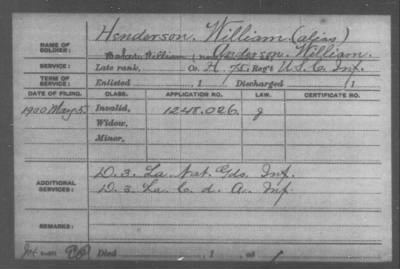 NAME OF SOLDIER: Henderson, William (alias)
William Anderson, William.
SERVICE: Late rank, Co. H, 75 Reg't U.S.C. Inf.
TERM OF SERVICE: Enlisted 1 Discharged 1
DATE OF FILING. CLASS. APPLICATION NO. LAW. CERTIFICATE NO.
1900 May 5. Invalid, 1248.026. J
Widow,
Minor,
ADDITIONAL SERVICES: D. 3. La. Nat. Gds. Inf.
D. 3. La. C. d. A. Inf
REMARKS:
Died 1